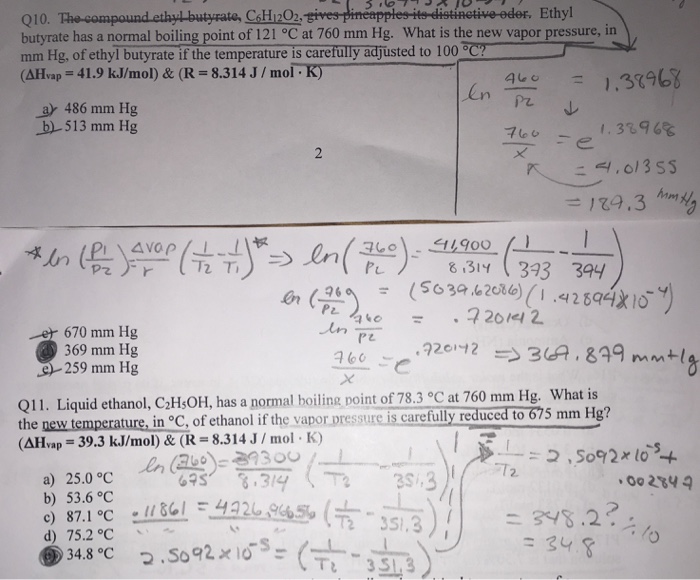 Q10. The compound ethyl butyrate, C₆H₁₂O₂, gives pineapples its distinctive odor. Ethyl
butyrate has a normal boiling point of 121 °C at 760 mm Hg. What is the new vapor pressure, in
mm Hg, of ethyl butyrate if the temperature is carefully adjusted to 100 °C?
(ΔHvap = 41.9 kJ/mol) & (R = 8.314 J / mol · K)
ln 960/P2 = 1.38968
a) 486 mm Hg
b) 513 mm Hg
760/x = e^1.38968
= 4.01355
= 189.3 mmHg
2
* ln (P1/P2) = Δvap/r (1/T2 - 1/T1)* => ln(760/P2) = 41,900/8.314 (1/373 - 1/394)
ln (760/P2) = (5039.62086)(1.42894x10⁻⁴)
ln 760/P2 = .720142
760/x = e^.720142 => 369.879 mmHg
c) 670 mm Hg
369 mm Hg
e) 259 mm Hg
Q11. Liquid ethanol, C₂H₅OH, has a normal boiling point of 78.3 °C at 760 mm Hg. What is
the new temperature, in °C, of ethanol if the vapor pressure is carefully reduced to 675 mm Hg?
(ΔHvap = 39.3 kJ/mol) & (R = 8.314 J / mol · K)
ln (760/675) = 39300/8.314 (1/T2 - 1/351.3)
1/T2 = 2.5092x10⁻⁵ + .002847
a) 25.0 °C
b) 53.6 °C
c) 87.1 °C
d) 75.2 °C
34.8 °C
.11861 = 4726.96656 (1/T2 - 1/351.3)
2.5092x10⁻⁵ = (1/T2 - 1/351.3)
= 348.2? ÷10
= 34.8